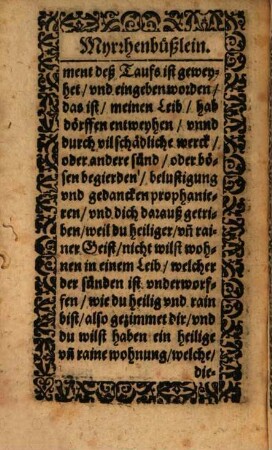 Myrrhenbüßlein.
ment deß Taufs ist gewey-
het / vnd eingebenworden /
das ist / meinen Leib / hab
dörffen entweyhen / vnnd
durch vil schädliche werck /
oder andere sünd / oder bö-
sen begierden / belustigung
vnd gedancken prophanie-
ren / vnd dich darauß getri-
ben / weil du heiliger / vñ rai-
ner Geist / nicht wilst woh-
nen in einem Leib / welcher
der sünden ist vnderworf-
fen / wie du heilig vnd rain
bist / also gezimmet dir / vnd
du wilst haben ein heilige
vñ raine wohnung / welche /
die-